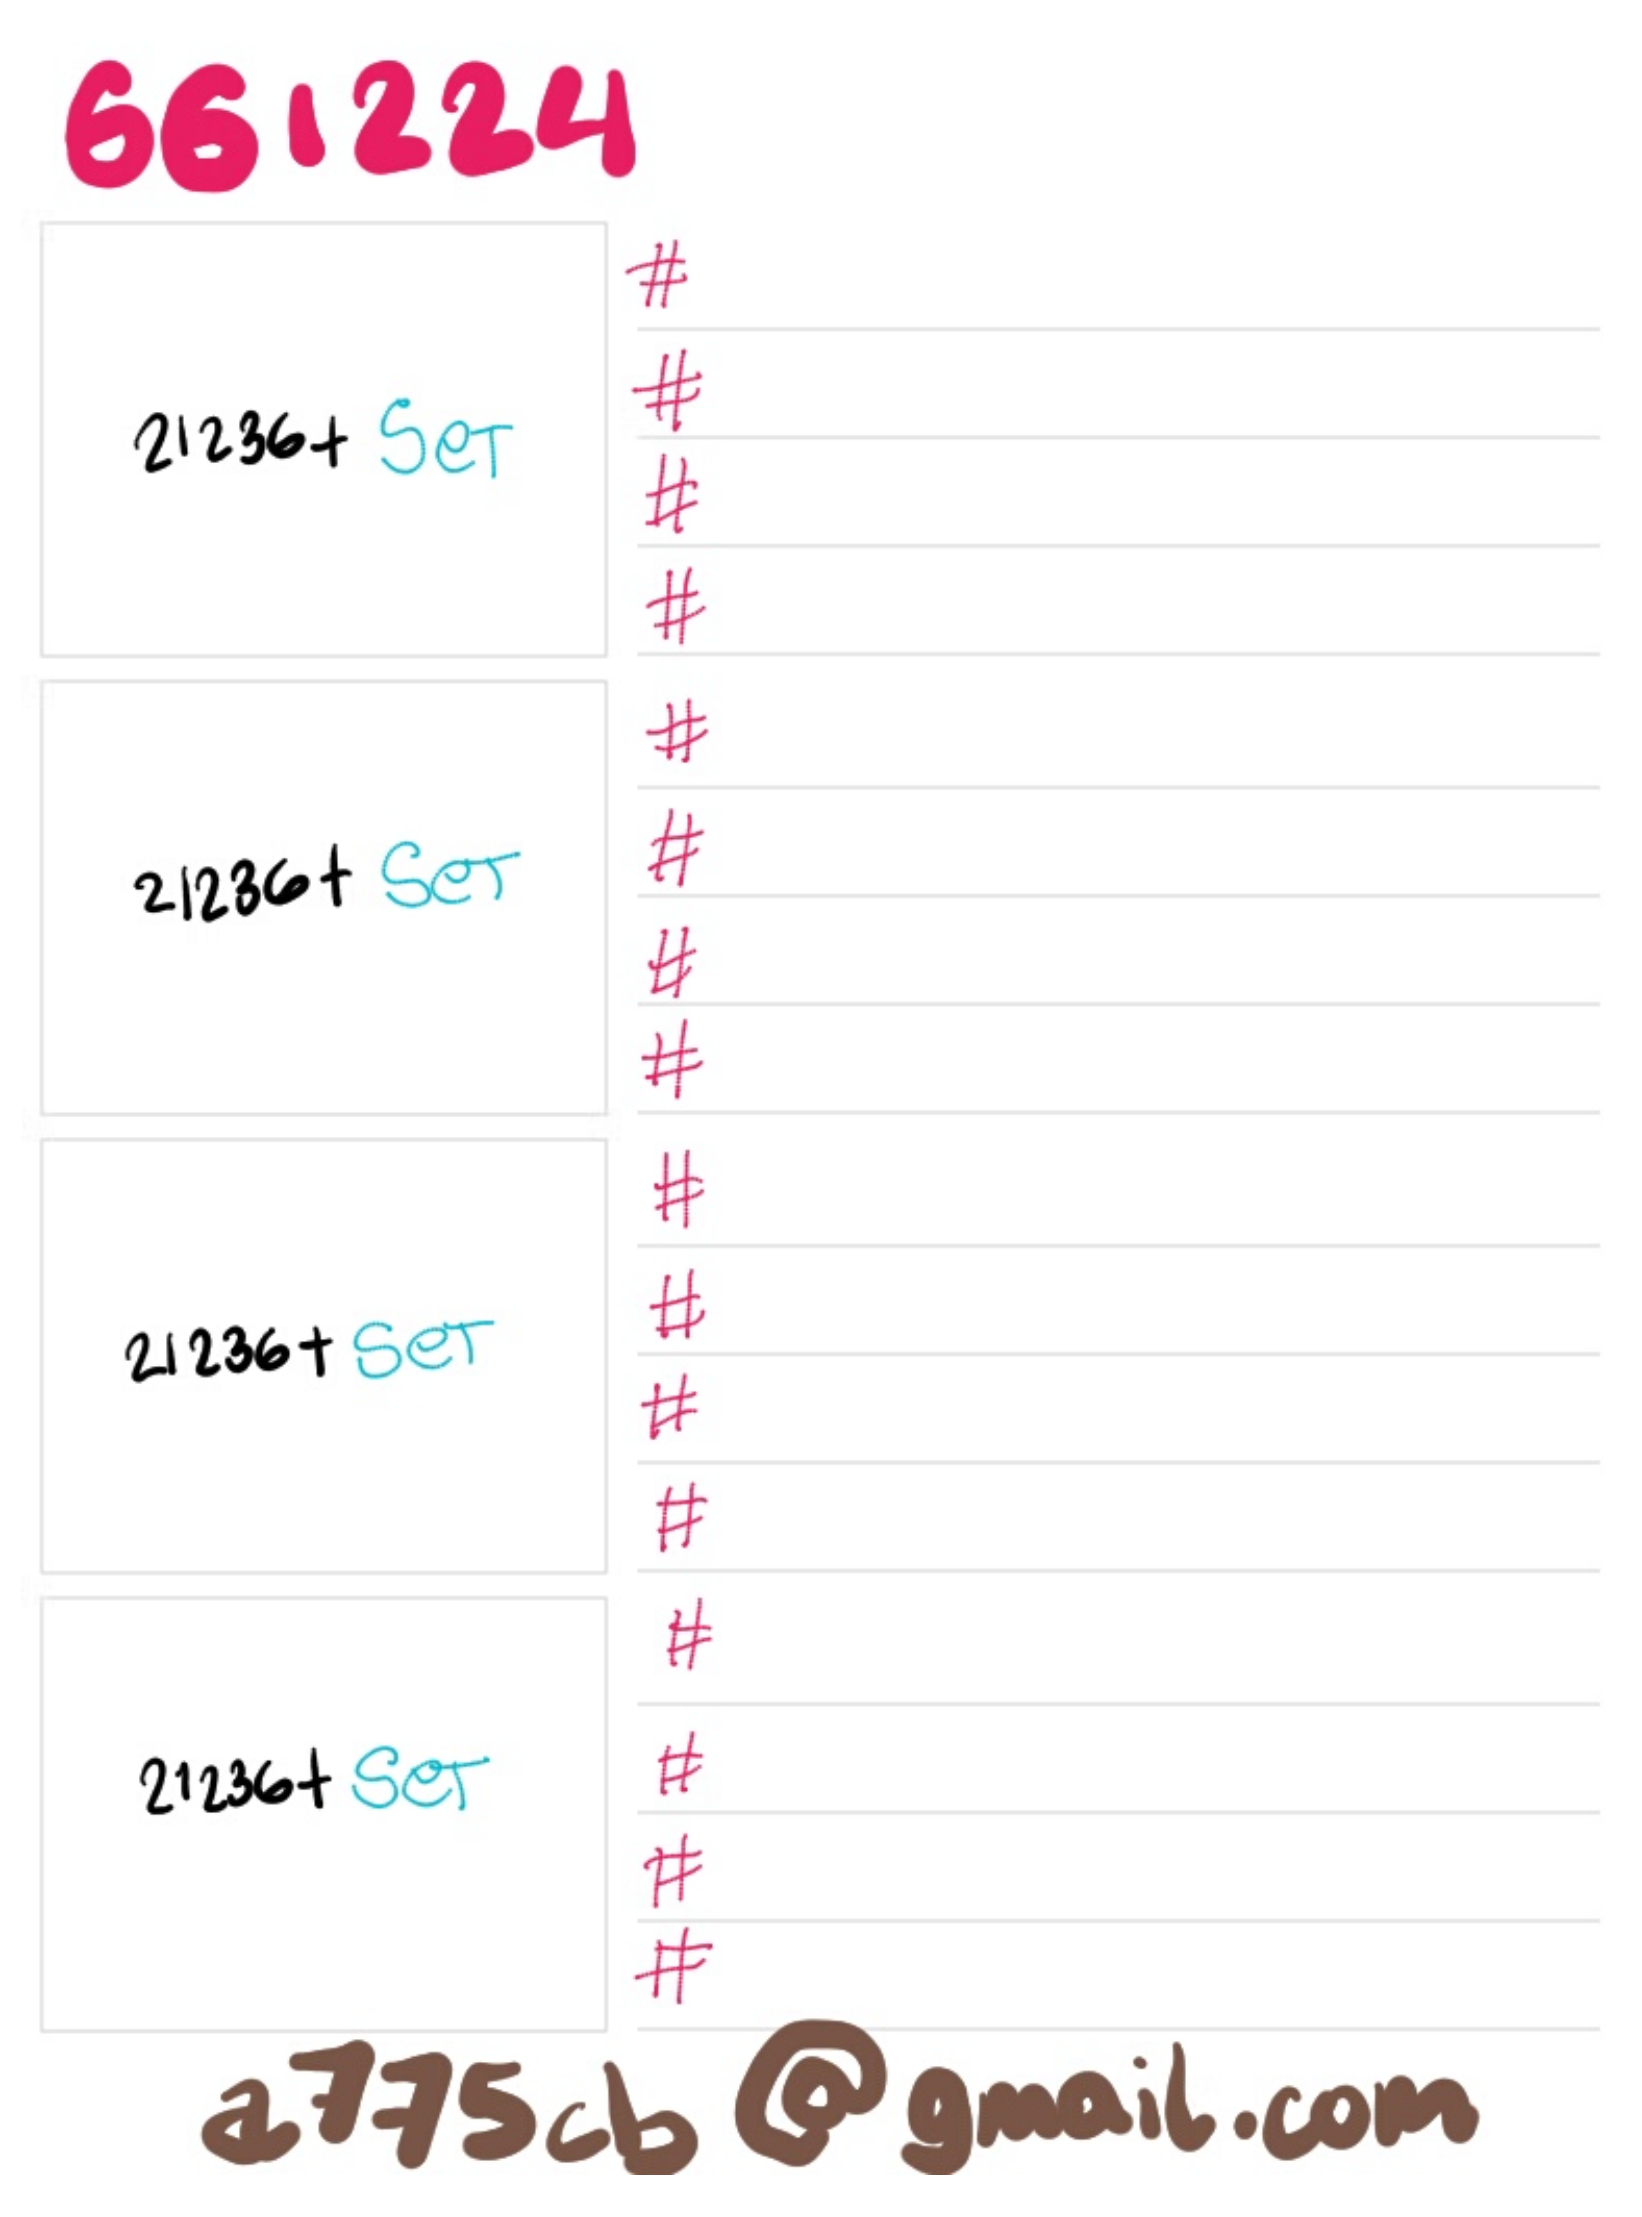 661224
#
#
21236+ Set
#
#
#
#
21236+ Set
#
#
#
#
21236+ Set
#
#
#
#
21236+ Set
#
#
a775cb@gmail.com